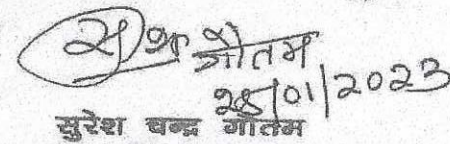 गौतम
25/01/2023
सुरेश चन्द्र गौतम